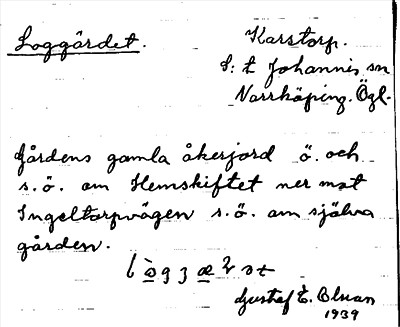 Loggärdet.
Karstorp.
S:t Johannis sn
Norrköping. Ögl.
Gårdens gamla åkerjord ö. och
s.ö. om Hemskiftet ner mot
Ingeltorpvägen s.ö. om själva
gården.
Gustaf E.
1939